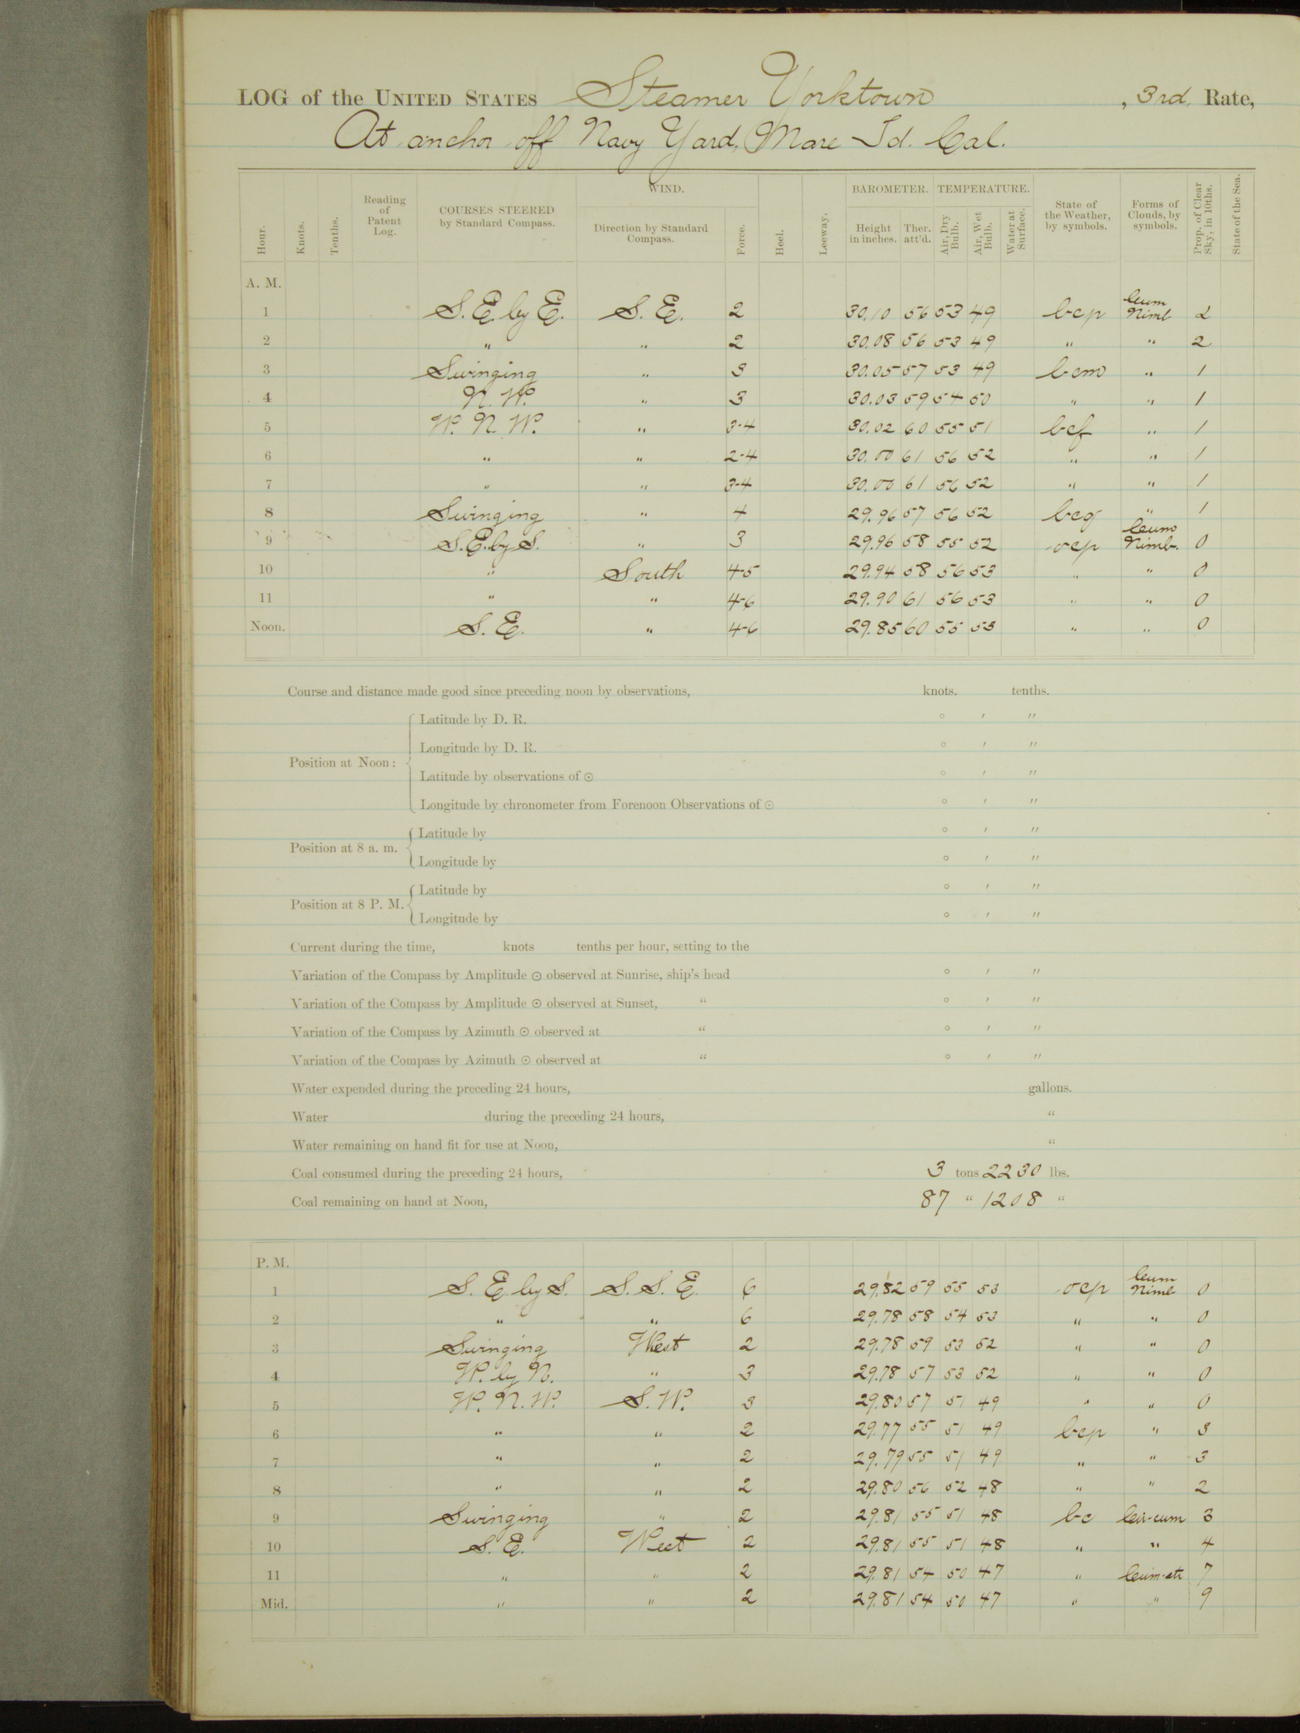 LOG of the UNITED STATES Steamer Yorktown, 3rd Rate,
At anchor off Navy Yard, Mare Id. Cal.
Hour. Knots. Tenths. Reading of Patent Log. COURSES STEERED by Standard Compass. WIND. Direction by Standard Compass. Force. Heel. Leeway. BAROMETER. Height in inches. Ther. att'd. TEMPERATURE. Air, Dry Bulb. Air, Wet Bulb. Water at Surface. State of the Weather, by symbols. Forms of Clouds, by symbols. Prop. of Clear Sky, in 10ths. State of the Sea.
A. M.
1 S. E. by E. S. E. 2 30.10 56 53 49 bcp Cum Nimb 2
2 " " 2 30.08 56 53 49 " " 2
3 Swinging " 3 30.05 57 53 49 bcm " 1
4 N. W. " 3 30.03 59 54 50 " " 1
5 W. N. W. " 3-4 30.02 60 55 51 bcf " 1
6 " " 2-4 30.00 61 56 52 " " 1
7 " " 3-4 30.00 61 56 52 " " 1
8 Swinging " 4 29.96 57 56 52 bcq " 1
9 S.E. by S. " 3 29.96 58 55 52 ocp Cum Nimb. 0
10 " South 4-5 29.94 58 56 53 " " 0
11 " " 4-6 29.90 61 56 53 " " 0
Noon. S. E. " 4-6 29.85 60 55 53 " " 0
Course and distance made good since preceding noon by observations, knots. tenths.
Position at Noon: Latitude by D. R. ° ′ ″
Longitude by D. R. ° ′ ″
Latitude by observations of ☉ ° ′ ″
Longitude by chronometer from Forenoon Observations of ☉ ° ′ ″
Position at 8 a. m. Latitude by ° ′ ″
Longitude by ° ′ ″
Position at 8 P. M. Latitude by ° ′ ″
Longitude by ° ′ ″
Current during the time, knots tenths per hour, setting to the
Variation of the Compass by Amplitude ☉ observed at Sunrise, ship's head ° ′ ″
Variation of the Compass by Amplitude ☉ observed at Sunset, " ° ′ ″
Variation of the Compass by Azimuth ☉ observed at " ° ′ ″
Variation of the Compass by Azimuth ☉ observed at " ° ′ ″
Water expended during the preceding 24 hours, gallons.
Water during the preceding 24 hours, "
Water remaining on hand fit for use at Noon, "
Coal consumed during the preceding 24 hours, 3 tons 2230 lbs.
Coal remaining on hand at Noon, 87 " 1208 "
P. M.
1 S. E. by S. S. S. E. 6 29.82 59 55 53 ocp Cum Nimb 0
2 " " 6 29.78 58 54 53 " " 0
3 Swinging West 2 29.78 59 53 52 " " 0
4 W. by N. " 3 29.78 57 53 52 " " 0
5 W. N. W. S. W. 3 29.80 57 51 49 " " 0
6 " " 2 29.77 55 51 49 bcp " 3
7 " " 2 29.79 55 51 49 " " 3
8 " " 2 29.80 56 52 48 " " 2
9 Swinging " 2 29.81 55 51 48 bc Cir-cum 3
10 S. E. West 2 29.81 55 51 48 " " 4
11 " " 2 29.81 54 50 47 " Cum-str 7
Mid. " " 2 29.81 54 50 47 " " 9